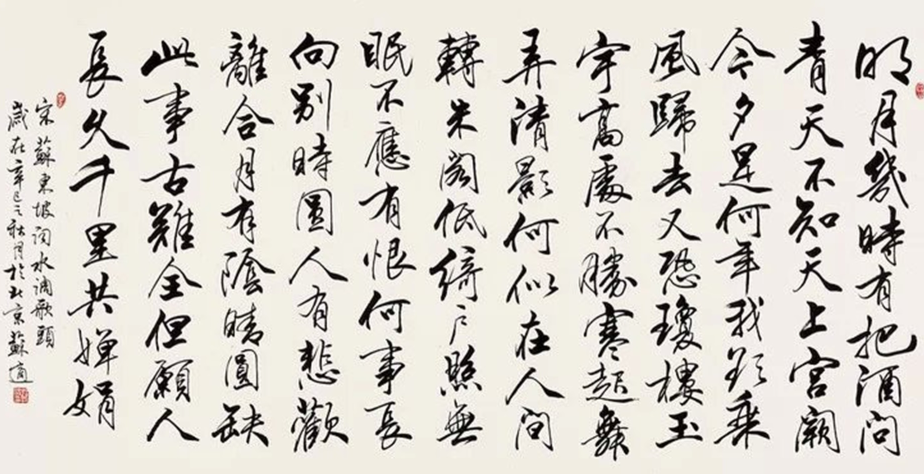 明月幾時有把酒問
青天不知天上宮闕
今夕是何年我欲乘
風歸去又恐瓊樓玉
宇高處不勝寒起舞
弄清影何似在人間
轉朱閣低綺户照無
眠不應有恨何事長
向别時圓人有悲歡
離合月有陰晴圓缺
此事古難全但願人
長久千里共嬋娟
宋蘇東坡詞水調歌頭
歲在辛巳之秋月於北京蘇適